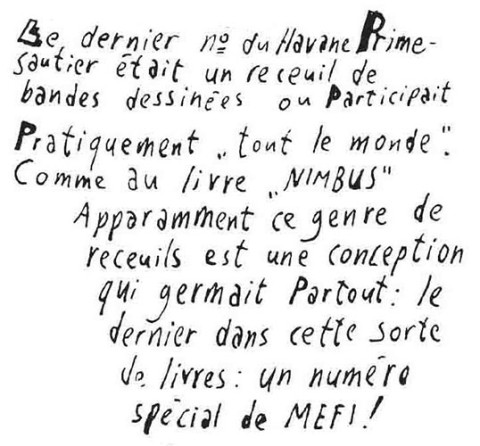 Le dernier nº du Havane Prime-
sautier était un receuil de
bandes dessinées ou Participait
Pratiquement „tout le monde".
Comme au livre „NIMBUS"
Apparamment ce genre de
receuils est une conception
qui germait Partout: le
dernier dans cette sorte
de livres: un numéro
spécial de MEFI!